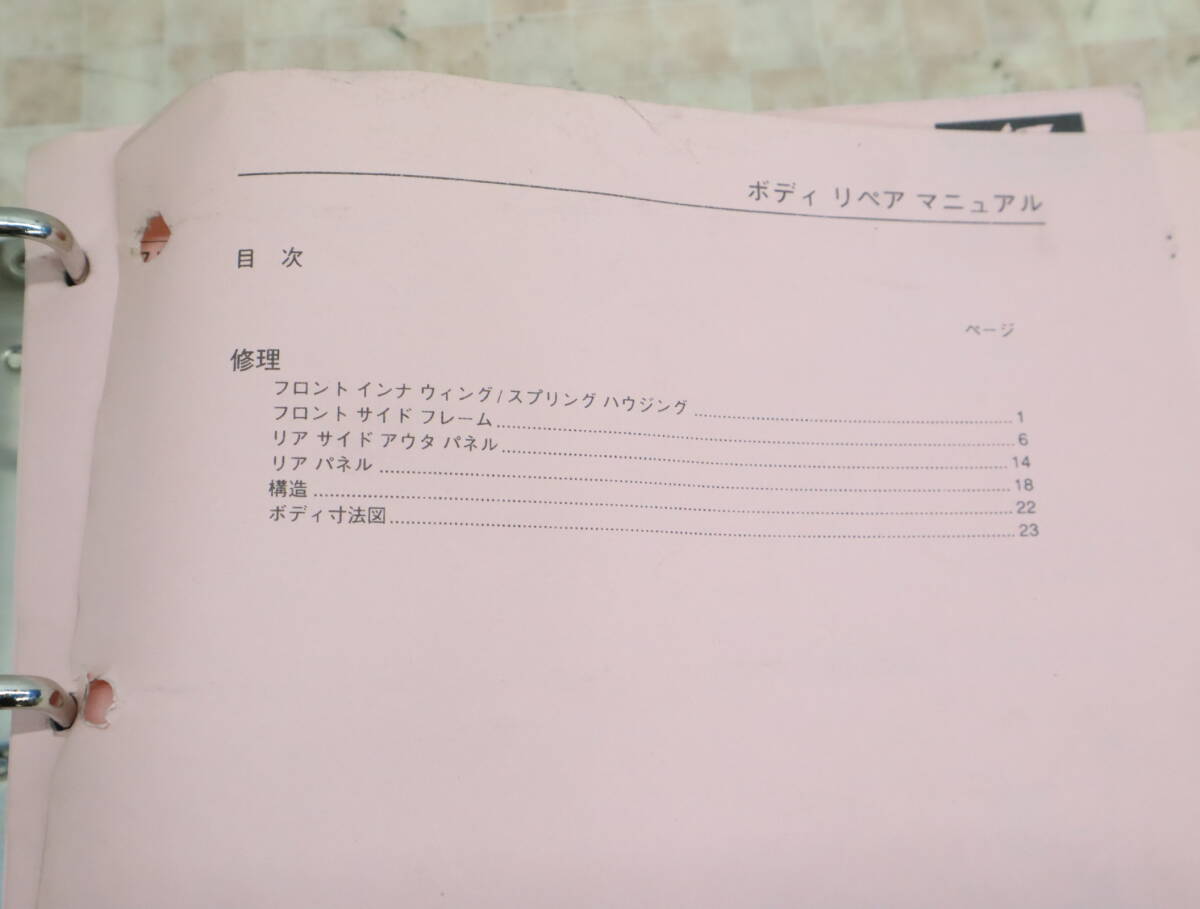 ボディ リペア マニュアル
目 次
ページ
修理
フロント インナ ウィング/スプリング ハウジング 1
フロント サイド フレーム 6
リア サイド アウタ パネル 14
リア パネル 18
構造 22
ボディ寸法図 23